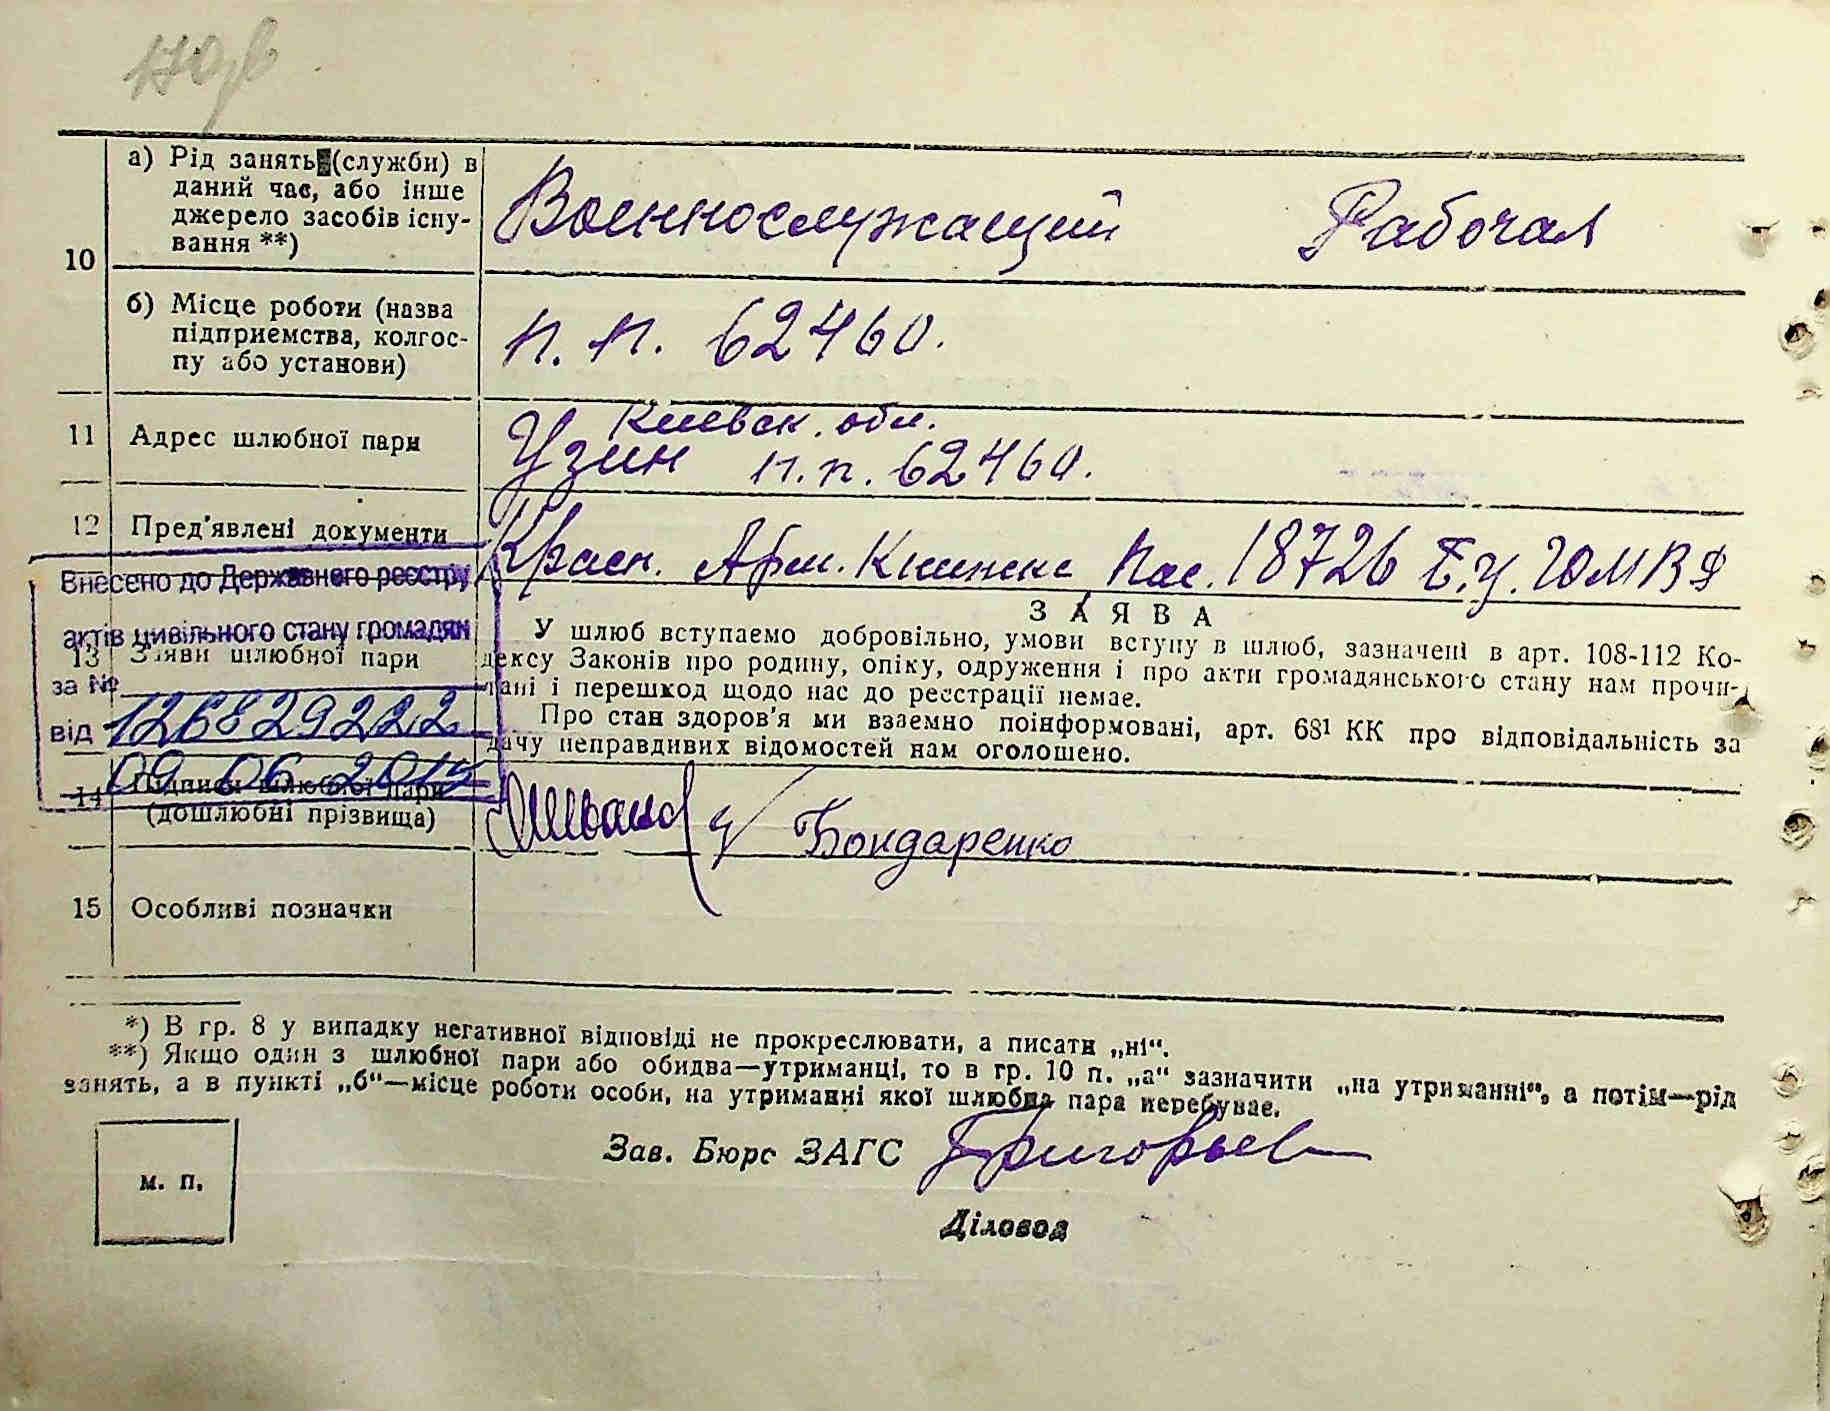 а) Рід занять (служби) в
даний час, або інше
джерело засобів існу-
вання **)
Военнослужащий Рабочая
10
б) Місце роботи (назва
підприємства, колгос-
пу або установи)
п. п. 62460.
11 Адрес шлюбної пари
Киевск. обл.
Узин п.п. 62460.
12 Пред'явлені документи
Красн. Арм. Книжка Пас. 18726
Внесено до Державного реєстру
актів цивільного стану громадян
за №
від 1268292222
09 06 2015
ЗАЯВА
13 Заяви шлюбної пари
У шлюб вступаємо добровільно, умови вступу в шлюб, зазначені в арт. 108-112 Ко-
дексу Законів про родину, опіку, одруження і про акти громадянського стану нам прочи-
тані і перешкод щодо нас до реєстрації немає.
Про стан здоров'я ми взаємно поінформовані, арт. 68¹ КК про відповідальність за
дачу неправдивих відомостей нам оголошено.
14 Підписи шлюбної пари
(дошлюбні прізвища)
Бондаренко
15 Особливі позначки
*) В гр. 8 у випадку негативної відповіді не прокреслювати, а писати „ні“.
**) Якщо один з шлюбної пари або обидва—утриманці, то в гр. 10 п. „а“ зазначити „на утриманні“, а потім—рід
занять, а в пункті „б“—місце роботи особи, на утриманні якої шлюбна пара перебуває.
Зав. Бюро ЗАГС Григорьев
м. п.
Діловод